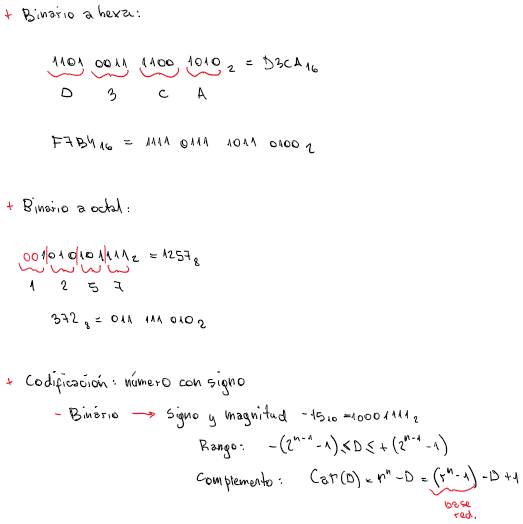 + Binario a hexa:
1101 0011 1100 1010₂ = D3CA₁₆
D 3 C A
F7B4₁₆ = 1111 0111 1011 0100₂
+ Binario a octal:
001|010|101|111₂ = 1257₈
1 2 5 7
372₈ = 011 111 010₂
+ Codificación: número con signo
- Binário → Signo y magnitud -15₁₀ = 10001111₂
Rango: -(2ⁿ⁻¹-1) ≤ D ≤ +(2ⁿ⁻¹-1)
Complemento: Car(D) = rⁿ - D = (rⁿ-1) - D + 1
base
red.